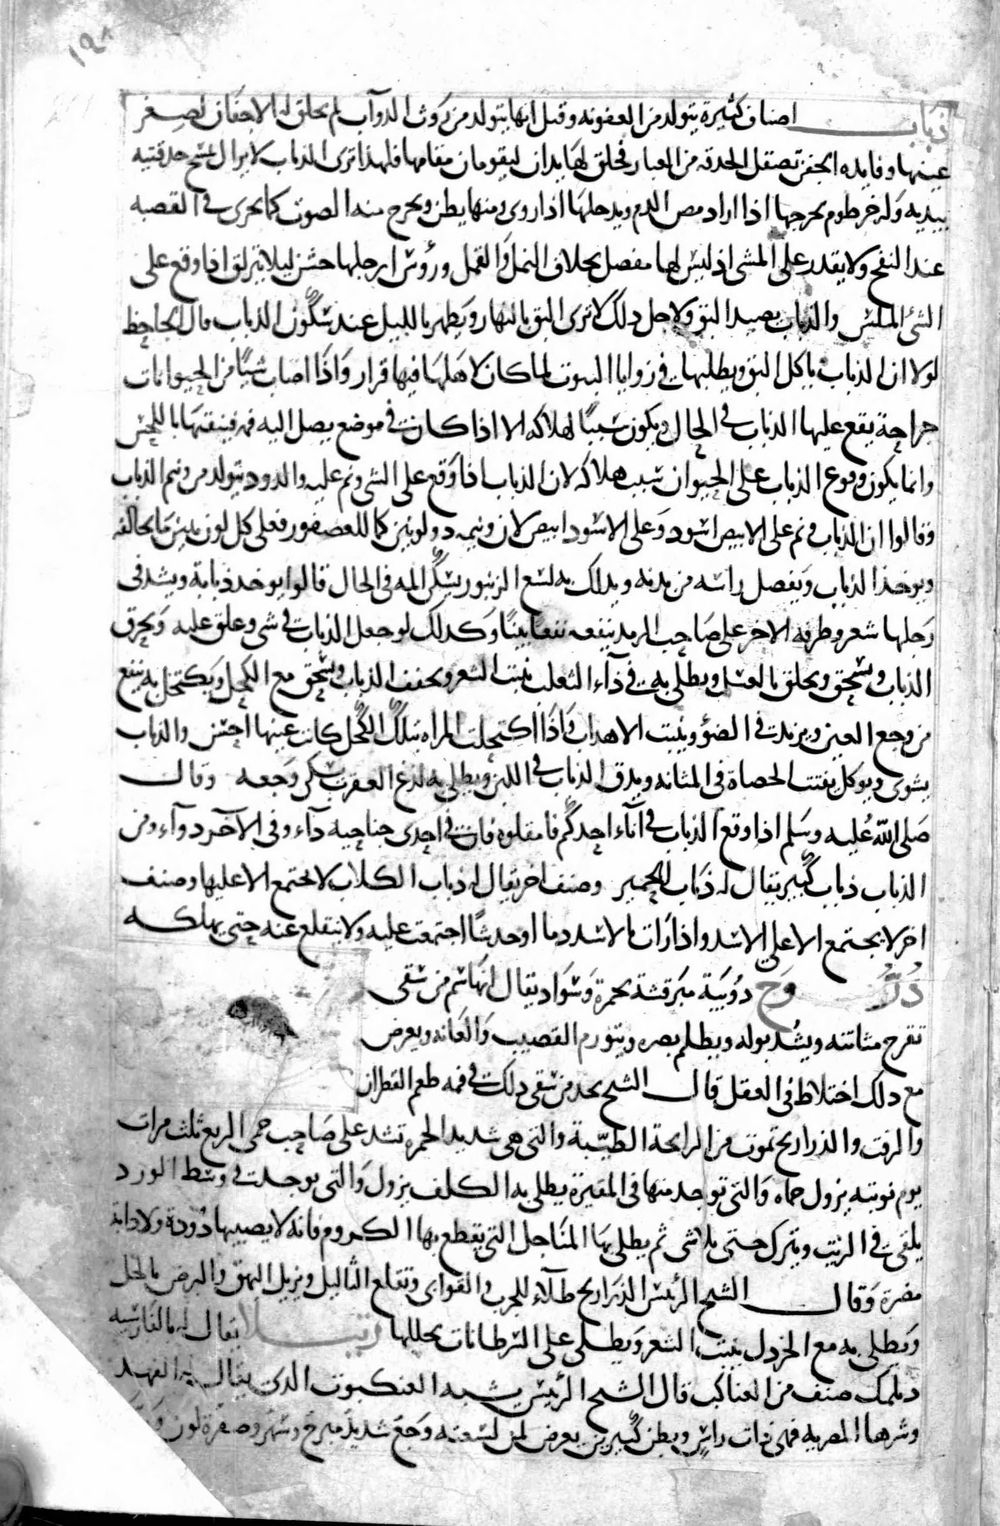 ١٩٨
ذباب اصناف كثيرة يتولد من العفونه وقيل انها يتولد من روث الدواب لم يخلق له الاجفان لصغر
عينها وفايده الجفن تصقل الحدقه من الغبار فخلق لها يدان ليقومان مقامها فلهذا ترى الذباب لا يزال يمسح حدقتيه
بيديه وله خرطوم يخرجها اذا اراد مص الدم ويدخلها اذا روى ومنها يطن ويخرج منه الصوت كما يجرى فى القصبه
عند النفخ ولا يقدر على المشى اذ ليس لها مفصل بخلاف النمل والقمل ورؤس ارجلها خشن ليلا يزلق اذا وقع على
الشئ الملس والذباب يصيد البق ولاجل ذلك لا ترى البق بالنهار ويظهر بالليل عند سكون الذباب قال الجاحظ
لولا ان الذباب ياكل البق ويطلبها فى زوايا البيوت لما كان لاهلها فيها قرار واذا اصاب شيا من الحيوانات
جراحة يقع عليها الذباب فى الحال ويكون سببا لهلاكه الا اذا كان فى موضع يصل اليه فمه فينقها باللحس
وانما يكون وقوع الذباب على الحيوان سبب هلاكه لان الذباب اذا وقع على الشى ونم عليه والدود يتولد من ونم الذباب
وقالوا ان الذباب ونم على الابيض اسود وعلى الاسود ابيض لان ونيمه ذو لونين كما للعصفور فعلى كل لون يبين ما يخالفه
ويوخذ الذباب ويفصل راسه من بدنه ويدلك به لسع الزنبور يسكن المه فى الحال قالوا يوخذ ذبابة ويشد فى
رجلها شعر وطرفه الاخر على صاحب الرمد ينفعه نفعا بينا وكذلك لو جعل الذباب فى شى وعلق عليه ويحرق
الذباب ويسحق ويخلق بالعسل ويطلى به فى داء الثعلب ينبت الشعر ويجفف الذباب ويسحق مع الكحل ويكتحل به ينفع
من وجع العين ويزيد فى الضؤ وينبت الاهداب واذا اكتحلت المراة بتلك الكحل كانت عينها احسن والذباب
يشوى ويوكل يفتت الحصاة فى المثانه ويدق الذباب فى اللبن ويطلى به لدغ العقرب يسكن وجعه وقال
صلى الله عليه وسلم اذا وقع الذباب فى انآء احدكم فامقلوه فان فى احدى جناحيه دآء وفى الآخر دوآء ومن
الذباب ذباب كبير يقال له ذباب الحمير وصنف اخر يقال له ذباب الكلاب لا يجتمع الا عليها وصنف
اخر لا يجتمع الا على الاسد واذا رات بالاسد دما او خدشا اجتمعت عليه ولا ينقلع عنه حتى يهلكه
ذروح دويبة مبرقشة بحمرة وسواد يقال انها سم من سقى
تقرح مثانته ويسد بوله ويظلم بصره ويتورم القضيب والعانه ويعرض
مع ذلك اختلاط فى العقل قال الشيخ يجد من سقى ذلك فى فمه طعم القطران
والزفت والذراريح تموت من الرايحة الطيبة والتى هى شديد الحمرة تشد على صاحب حمى الربع ثلث مرات
يوم نوبته يزول حماه والتى توجد منها فى المقبرة يطلى به الكلف يزول والتى يوجد فى وسط الورد
يلقى فى الزيت ويترك حتى يلاشى ثم يطلى بها المناجل التى يقطع بها الكروم فانه لا يصيبها دودة ولا دابة
مضرة وقال الشيخ الرئيس الذراريح طلآء للجرب والقوابى وتقلع الثاليل ويزيل البهق والبرص بالخل
ويطلى به مع الخردل ينبت الشعر ويطلى على السرطانات يحللها رتيلا يقال له بالفارسيه
دلمك صنف من العناكب قال الشيخ الرئيس يشبه العنكبوت الذى يقال له الفهد
وشرها المصريه فهى ذات راس وبطن كبيرين يعرض لمن لسعته وجع شديد مبرح وسهر وصفرة لون